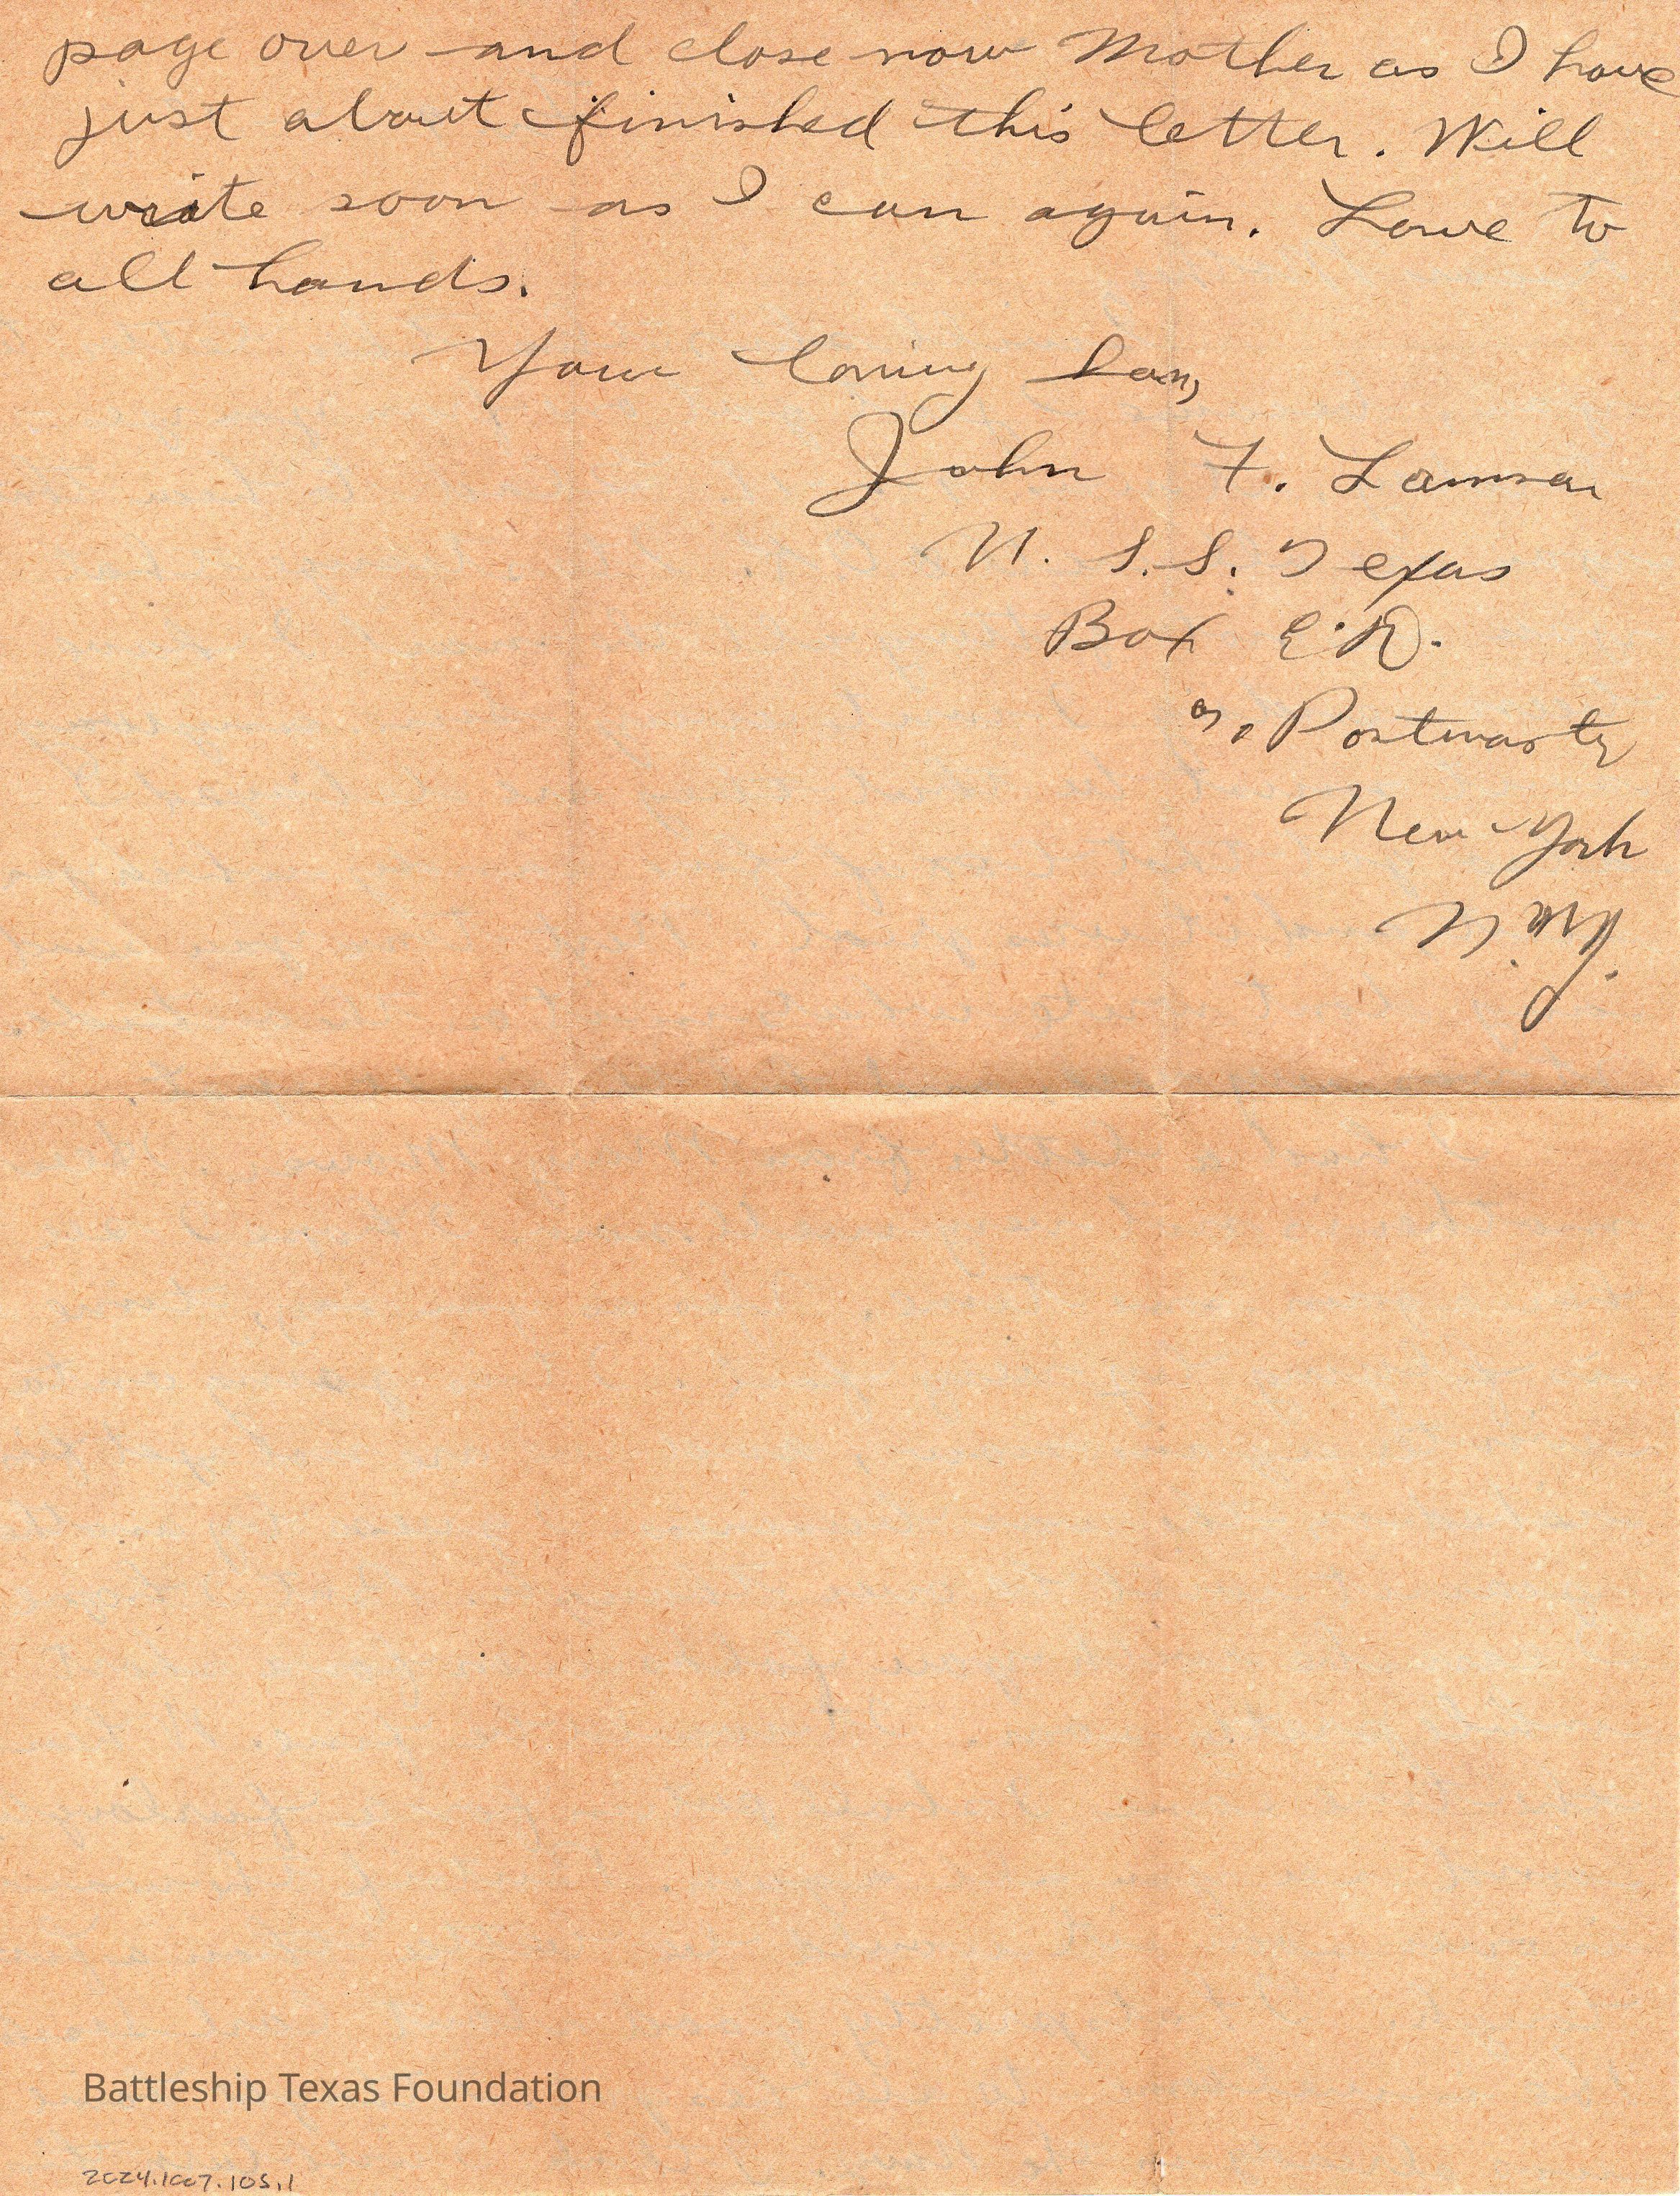 page over and close now Mother as I have
just about finished this letter. Will
write soon as I can again. Love to
all hands.
Your loving Son,
John F.
U. S.S. Texas
Box E.R.
℅ Postmaster
New York
N.Y.
Battleship Texas Foundation
2024.1007.105.1